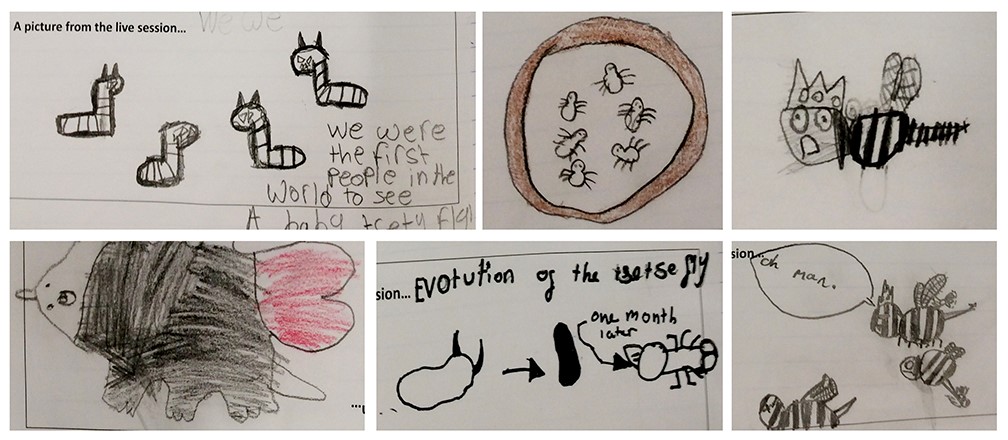 A picture from the live session...
We We
We were
the first
People in the
World to see
A baby
sion...
EVOtution of the tsetse fly
one month
later
sion...
oh man.